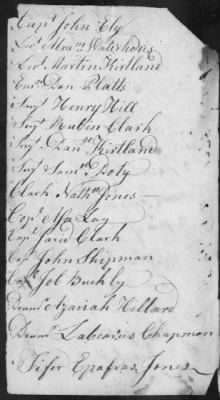 Capt John Ely
Lieut Abram Waterhous
Lieut Martin Kirtland
Ensn Dan Platts
Sergt Henry Hill
Sergt Rubin Clark
Sergt Danll Kirtland
Sergt Saml Doty
Clark Nathll Jones
Copl Asa Lay
Copl Jared Clark
Copl John Shipman
Copl Job Buckly
Drumr Azariah Hillard
Drumr Labcavius Chapman
Fifer Epafras Jones